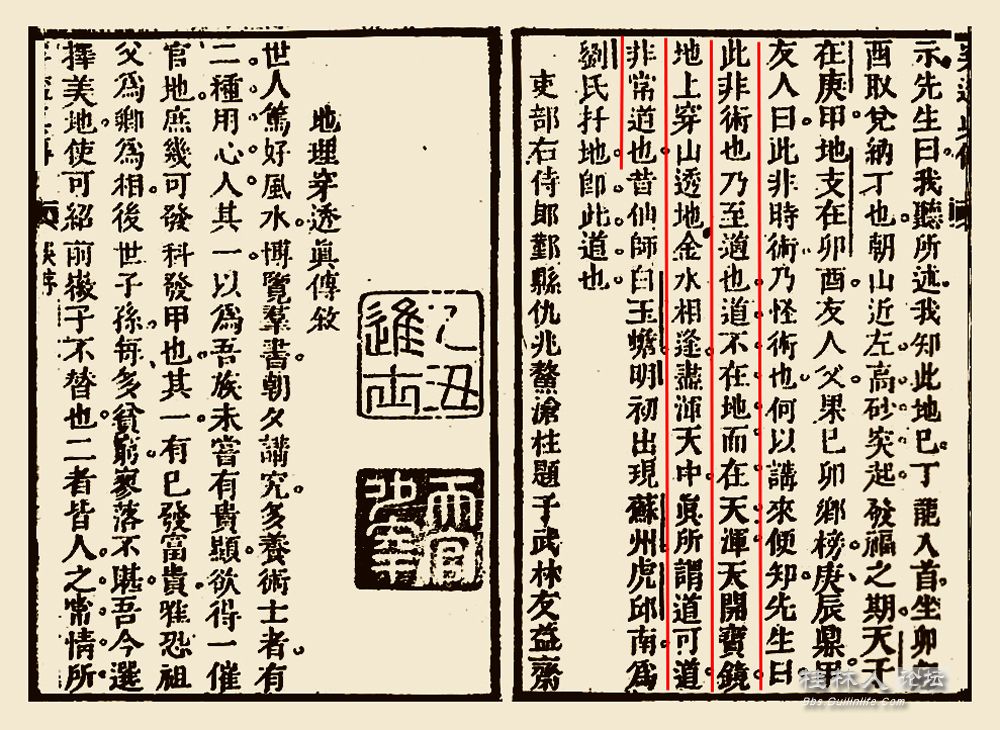 示先生曰我聽所述我知此地巳丁龍入首坐卯
酉取兌納丁也朝山近左高砂突起發福之期天干
在庚甲地支在卯酉友人父果巳卯鄉榜庚辰鼎甲
友人曰此非時術乃怪術也何以講來便知先生曰
此非術也乃至道也道不在地而在天渾天開寶鏡
地上穿山透地金水相逢盡渾天中眞所謂道可道
非常道也昔仙師白玉蟾明初出現蘇州虎邱南爲
劉氏扦地卽此道也
吏部右侍郎鄞縣仇兆鰲滄柱題于武林友益齋
乙丑
進士
天官
地理穿透眞傳敘
世人篤好風水博覽羣書朝夕講究多養術士者有
二種用心人其一以爲吾族未嘗有貴顯欲得一催
官地庶幾可發科發甲也其一有巳發富貴雅恐祖
父爲鄉爲相後世子孫每多貧窮寥落不堪吾今選
擇美地使可紹前徽子不替也二者皆人之常情所
桂林人论坛
Bbs.Guilinlife.Com